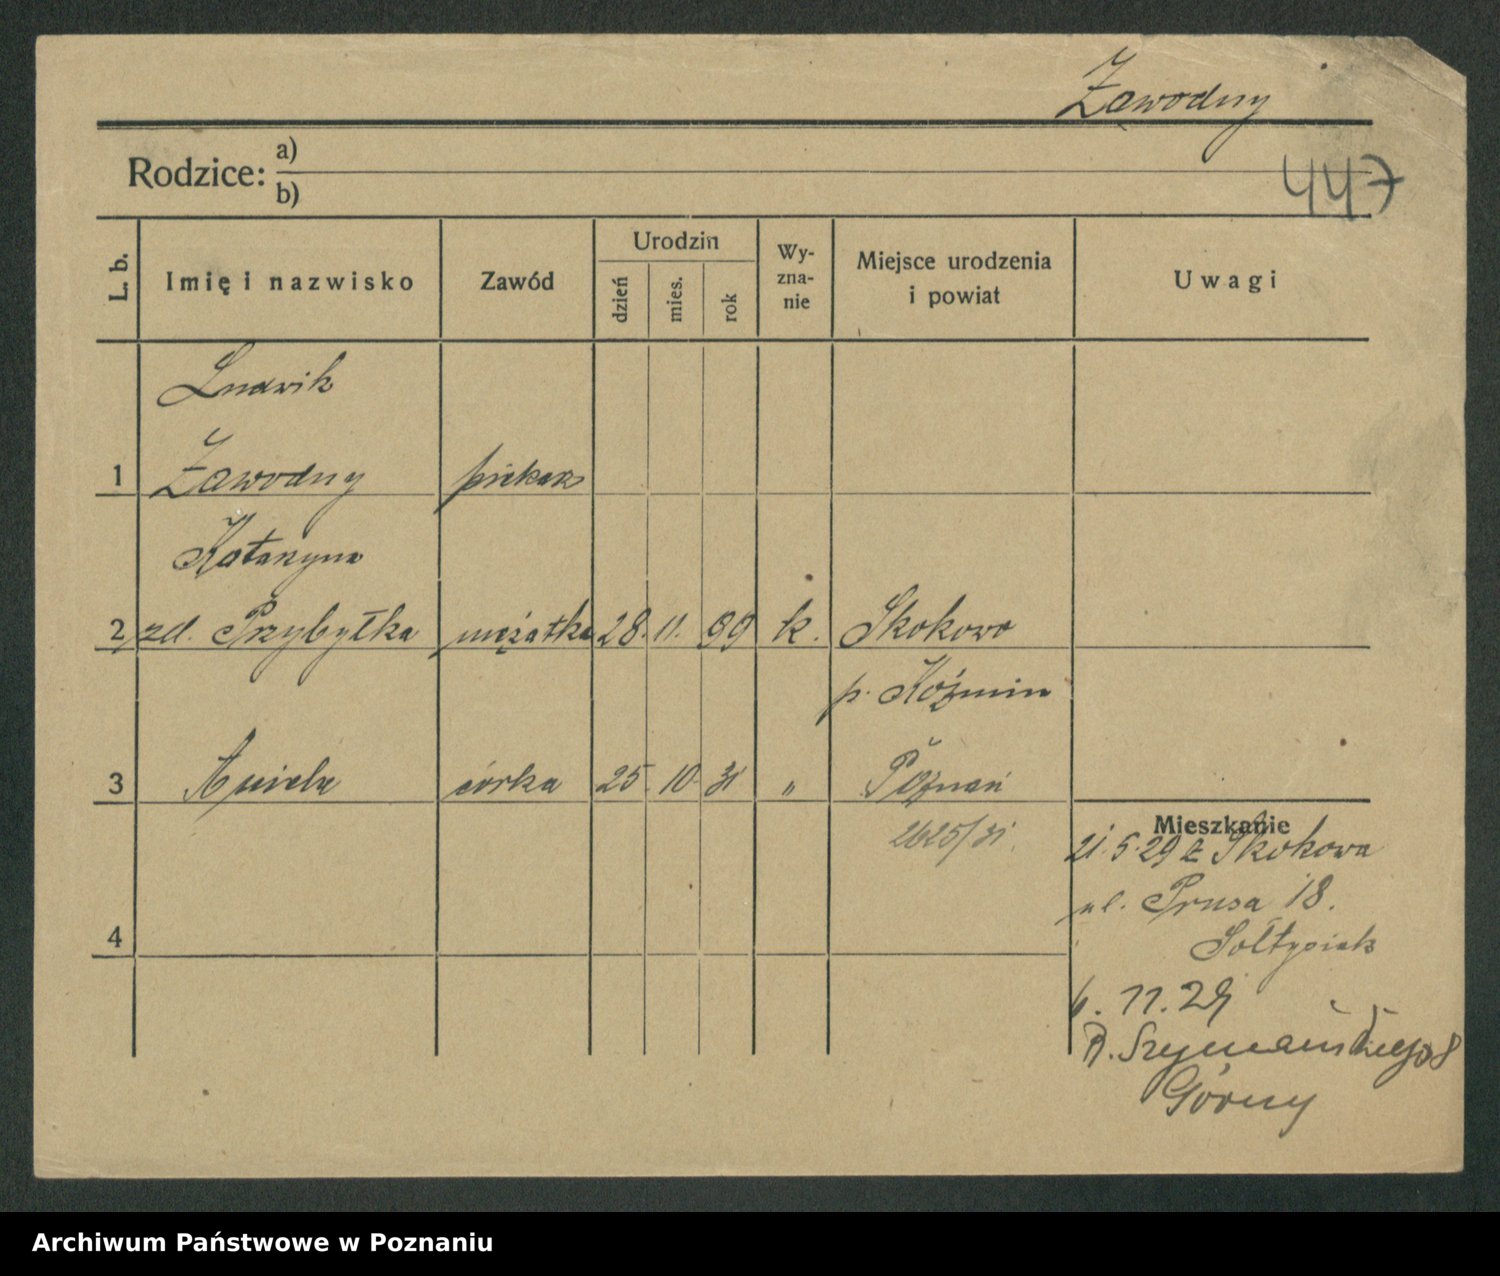 Zawodny
Rodzice: a)
b)
447
L. b. Imię i nazwisko Zawód Urodzin dzień mies. rok Wy-zna-nie Miejsce urodzenia i powiat Uwagi
Ludwik
1 Zawodny piekarz
Katarzyna
2 zd. Przybyłka mężatka 28. 11. 99 k. Skokowo
p. Koźmin
3 Aniela córka 25. 10. 31 " Poznań
Mieszkanie
2625/31.
21.5.29 z Skokowa
ul. Prusa 18.
Sołtysiak
4
6. 11. 29
R. Szymańskiego 8
Górny
Archiwum Państwowe w Poznaniu